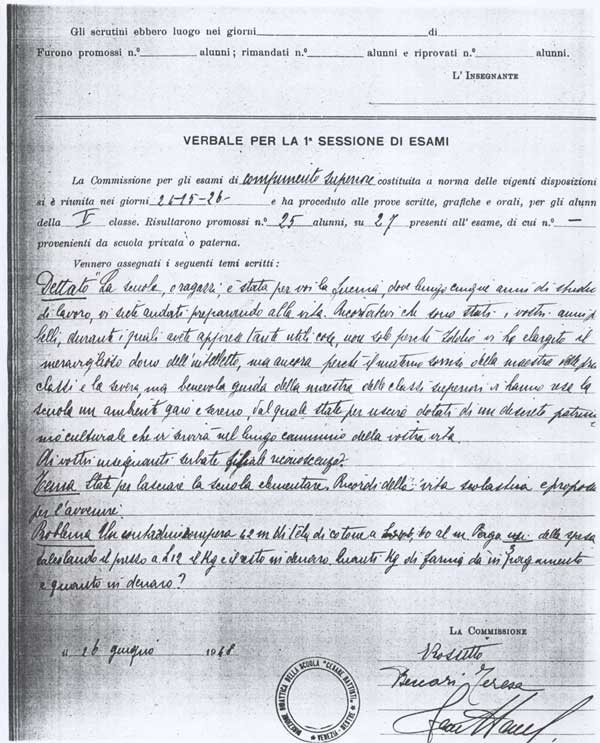 Gli scrutini ebbero luogo nei giorni di
Furono promossi n.º alunni; rimandati n.º alunni e riprovati n.º alunni.
L'INSEGNANTE
VERBALE PER LA 1ª SESSIONE DI ESAMI
La Commissione per gli esami di compimento superiore costituita a norma delle vigenti disposizioni
si è riunita nei giorni e ha proceduto alle prove scritte, grafiche e orali, per gli alunn
della V classe. Risultarono promossi n.º 25 alunni, su 27 presenti all'esame, di cui n.º —
provenienti da scuola privata o paterna.
Vennero assegnati i seguenti temi scritti:
Dettato "La scuola, o ragazzi, è stata per voi la dove lungo cinque anni di studio
di lavoro, vi siete andati preparando alla vita. Ricordatevi che sono stati i vostri anni più
belli, durante i quali avete appreso tante utili cose, non solo perchè Iddio vi ha elargito il
meraviglioso dono dell'intelletto, ma ancora perchè il materno sorriso della maestra delle
classi e la severa, ma benevola guida della maestra delle classi superiori vi hanno resa la
scuola un ambiente gaio e sereno, dal quale state per uscire dotati di un discreto patrimo
nio culturale che vi servirà nel lungo cammino della vostra vita.
Ai vostri insegnanti serbate filiale riconoscenza".
Tema State per lasciare la scuola elementare. Ricordi della vita scolastica e propositi
per l'avvenire.
Problema Un contadino compera 42 m di tela di cotone a al m. Paga della spesa
calcolando il prezzo a L 12 il Kg e il resto in denaro. Quanti Kg di farina dà in pagamento
e quanto in denaro?
LA COMMISSIONE
li 26 giugno 1948
Rossetto
Beccari Teresa
DIREZIONE DIDATTICA DELLA SCUOLA "CESARE BATTISTI" VENEZIA - MESTRE